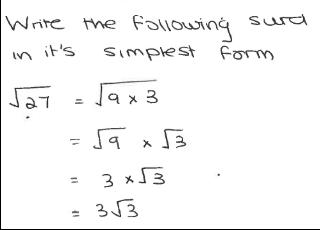 Write the following surd
in it's simplest form
√27 = √9 × 3
= √9 × √3
= 3 × √3
= 3√3